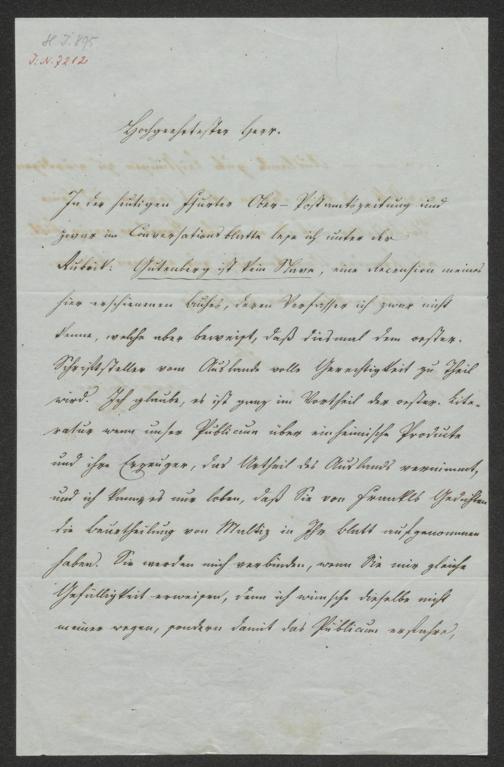 H. I. 895
I. N. 7212
Hochgeehrtester Herr.
In der heutigen Ffurter Ober-Postamtszeitung und
zwar im Conversationsblatte lese ich unter der
Rubrik: Gutenberg ist kein Slave, eine Recension meines
hier erschienenen Buches, deren Verfasser ich zwar nicht
kenne, welche aber beweist, daß diesmal dem oester.
Schriftsteller vom Auslande volle Gerechtigkeit zu Theil
wird. Ich glaube, es ist ganz im Vortheil der oester. Lite-
ratur wenn unser Publicum über einheimische Producte
und ihre Erzeuger, das Urtheil des Auslands vernimmt,
und ich kann es nur loben, daß Sie von Frankls Gedichten
die Beurtheilung von Maltiz in Ihr Blatt aufgenommen
haben. Sie werden mich verbinden, wenn Sie mir gleiche
Gefälligkeit erweisen, denn ich wünsche dieselbe nicht
meiner wegen, sondern damit das Publicum erfahre,